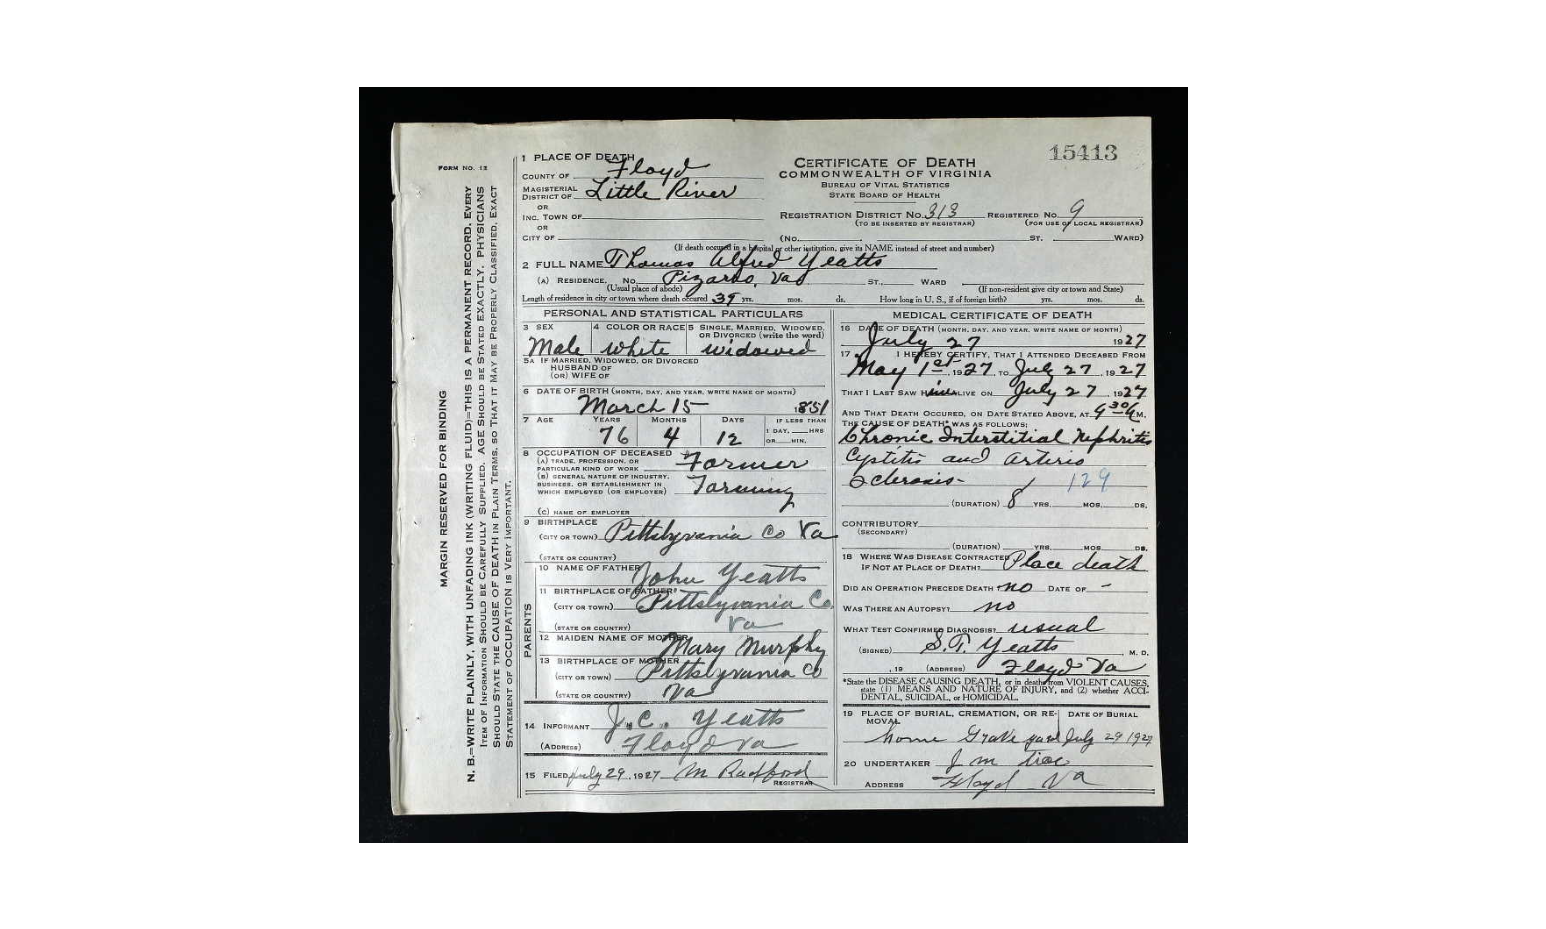 15413
FORM NO. 12
MARGIN RESERVED FOR BINDING
N. B.—WRITE PLAINLY, WITH UNFADING INK (WRITING FLUID)—THIS IS A PERMANENT RECORD. EVERY
ITEM OF INFORMATION SHOULD BE CAREFULLY SUPPLIED. AGE SHOULD BE STATED EXACTLY. PHYSICIANS
SHOULD STATE THE CAUSE OF DEATH IN PLAIN TERMS, SO THAT IT MAY BE PROPERLY CLASSIFIED. EXACT
STATEMENT OF OCCUPATION IS VERY IMPORTANT.
1 PLACE OF DEATH
COUNTY OF Floyd
MAGISTERIAL DISTRICT OF Little River
OR
INC. TOWN OF
OR
CITY OF
CERTIFICATE OF DEATH
COMMONWEALTH OF VIRGINIA
BUREAU OF VITAL STATISTICS
STATE BOARD OF HEALTH
REGISTRATION DISTRICT NO. 313 REGISTERED NO. 9
(TO BE INSERTED BY REGISTRAR) (FOR USE OF LOCAL REGISTRAR)
(NO. ST. WARD)
(If death occured in a hospital or other institution, give its NAME instead of street and number)
2 FULL NAME Thomas Alfred Yeatts
(A) RESIDENCE, No. Pizarro, Va ST., WARD
(Usual place of abode) (If non-resident give city or town and State)
Length of residence in city or town where death occured 39 yrs. mos. ds. How long in U. S., if of foreign birth? yrs. mos. ds.
PERSONAL AND STATISTICAL PARTICULARS
3 SEX 4 COLOR OR RACE 5 SINGLE, MARRIED, WIDOWED, OR DIVORCED (write the word)
Male white widowed
5A IF MARRIED, WIDOWED, OR DIVORCED
HUSBAND OF
(OR) WIFE OF
6 DATE OF BIRTH (MONTH, DAY, AND YEAR, WRITE NAME OF MONTH)
March 15 1851
7 AGE YEARS MONTHS DAYS IF LESS THAN
1 DAY, HRS
OR MIN.
76 4 12
8 OCCUPATION OF DECEASED
(A) TRADE, PROFESSION, OR
PARTICULAR KIND OF WORK Farmer
(B) GENERAL NATURE OF INDUSTRY,
BUSINESS, OR ESTABLISHMENT IN
WHICH EMPLOYED (OR EMPLOYER) Farming
(C) NAME OF EMPLOYER
9 BIRTHPLACE
(CITY OR TOWN) Pittslyvania Co Va
(STATE OR COUNTRY)
PARENTS
10 NAME OF FATHER John Yeatts
11 BIRTHPLACE OF FATHER
(CITY OR TOWN) Pittslyvania Co.
(STATE OR COUNTRY) Va
12 MAIDEN NAME OF MOTHER Mary Murphy
13 BIRTHPLACE OF MOTHER
(CITY OR TOWN) Pittslyvania Co
(STATE OR COUNTRY) Va
14 INFORMANT J.C. Yeatts
(ADDRESS) Floyd Va
15 FILED July 29, 1927 M Radford
REGISTRAR
MEDICAL CERTIFICATE OF DEATH
16 DATE OF DEATH (MONTH, DAY, AND YEAR, WRITE NAME OF MONTH)
July 27 1927
17 I HEREBY CERTIFY, THAT I ATTENDED DECEASED FROM
May 1st, 1927, TO July 27, 1927
THAT I LAST SAW HIM ALIVE ON July 27, 1927
AND THAT DEATH OCCURED, ON DATE STATED ABOVE, AT 9 30 A M.
THE CAUSE OF DEATH* WAS AS FOLLOWS:
Chronic Interstitial Nephritis
Cystitis and Arterio
Sclerosis- 129
(DURATION) 8 YRS. MOS. DS.
CONTRIBUTORY
(SECONDARY)
(DURATION) YRS. MOS. DS.
18 WHERE WAS DISEASE CONTRACTED
IF NOT AT PLACE OF DEATH? Place death
DID AN OPERATION PRECEDE DEATH? no DATE OF -
WAS THERE AN AUTOPSY? no
WHAT TEST CONFIRMED DIAGNOSIS? usual
(SIGNED) S.T. Yeatts M. D.
, 19 (ADDRESS) Floyd Va
*State the DISEASE CAUSING DEATH, or in deaths from VIOLENT CAUSES,
state (1) MEANS AND NATURE OF INJURY, and (2) whether ACCI-
DENTAL, SUICIDAL, or HOMICIDAL.
19 PLACE OF BURIAL, CREMATION, OR RE- DATE OF BURIAL
MOVAL
home Grave yard July 29 1927
20 UNDERTAKER J M
ADDRESS Floyd Va